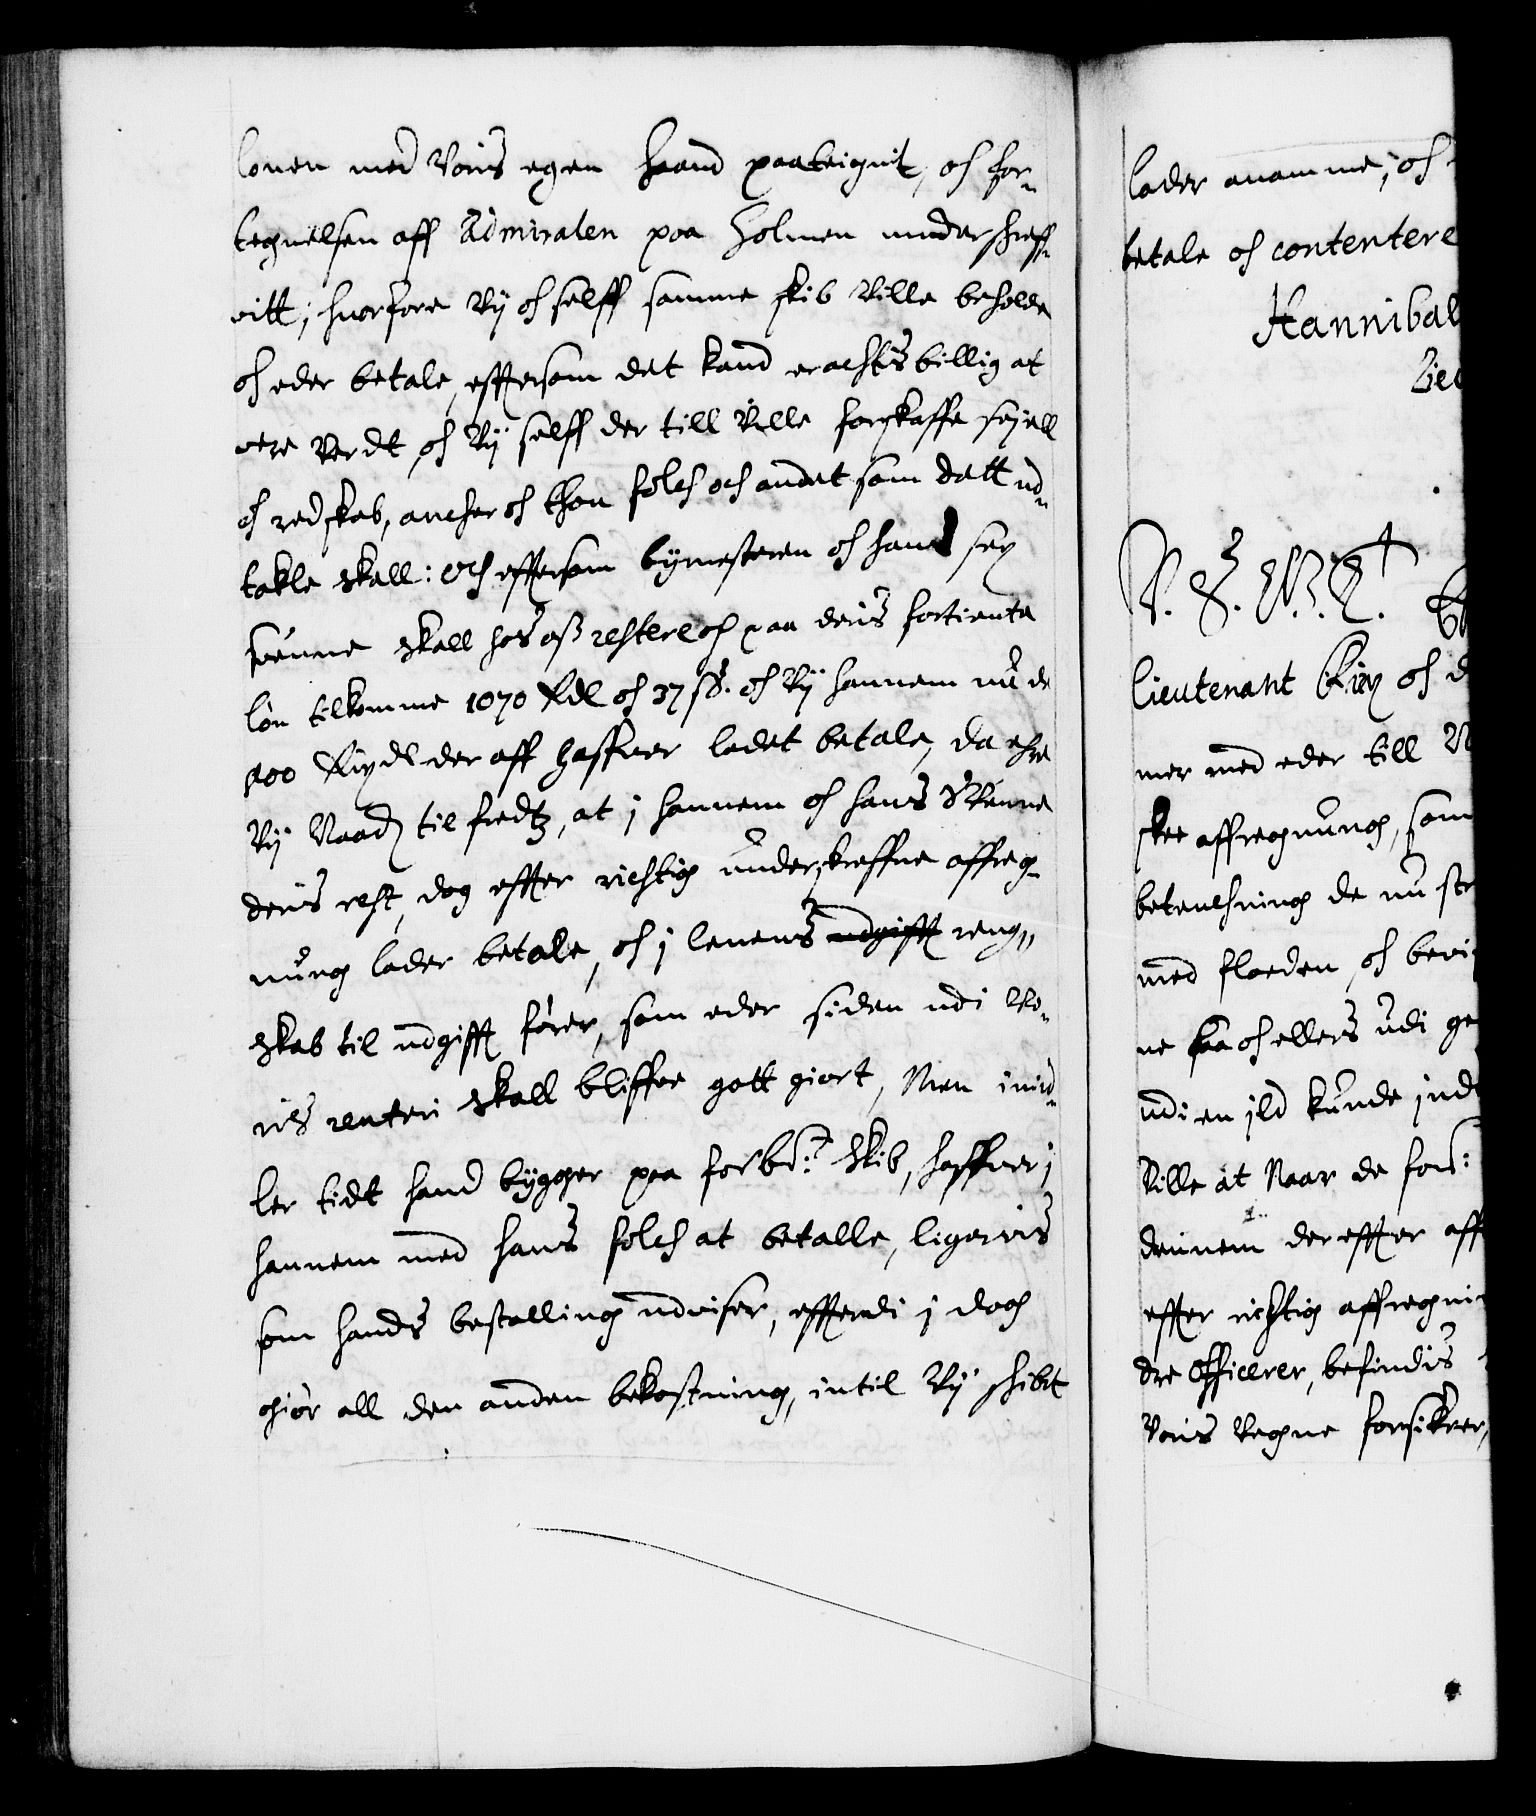 lonen med Voris egen Haand paateignit, och for-
tegnelsen aff Admiralen paa Holmen underschreff-
vitt; huorfore Vy och selff samme skib Ville beholde
och eder betale, effersom det kand erachtis billig at
vere Verdt, och Vy selff der till Ville forskaffe sejell
och redskab, ancher och thou folch och andet som dett ud-
takle skall: och effersom bygmesteren och hans
svenne skall hos oß restere och paa deris fortiente
løn tilkomme 1070 Rdl och 37 ß. och Vy hannem nu de
400 Rixdl der aff haffuer ladet betale, da ehre
Vy Naadig til fredtz, at j hannem och hans Suenne
deris rest, dog effter richtig underskreffne affreg-
nung lader betale, och j lenens udgifft reng-
skab til udgifft fører, som eder siden udi Vo-
ris renteri skall bliffue gott giort, Men imid-
ler tidt hand bygger paa forbde: Skib, haffuer j
hannem med hans folch at betalle, ligervis
som hands bestalling udviser, efftterdi j dog
giør all den anden bekostning, intil Vy schibit
lader anamme; och
betale och contentere
Hannibal
V. S. G. T.
lieutenant och
mer med eder till
skee affregnung, som
betenchning de nu
med floeden, och
ne och ellers udi
udi en jld kunde
Ville at Naar de
dennem dereffter aff
effter richtig affregni
dre Officerer, befindis
Voris Vegne forsikrer,